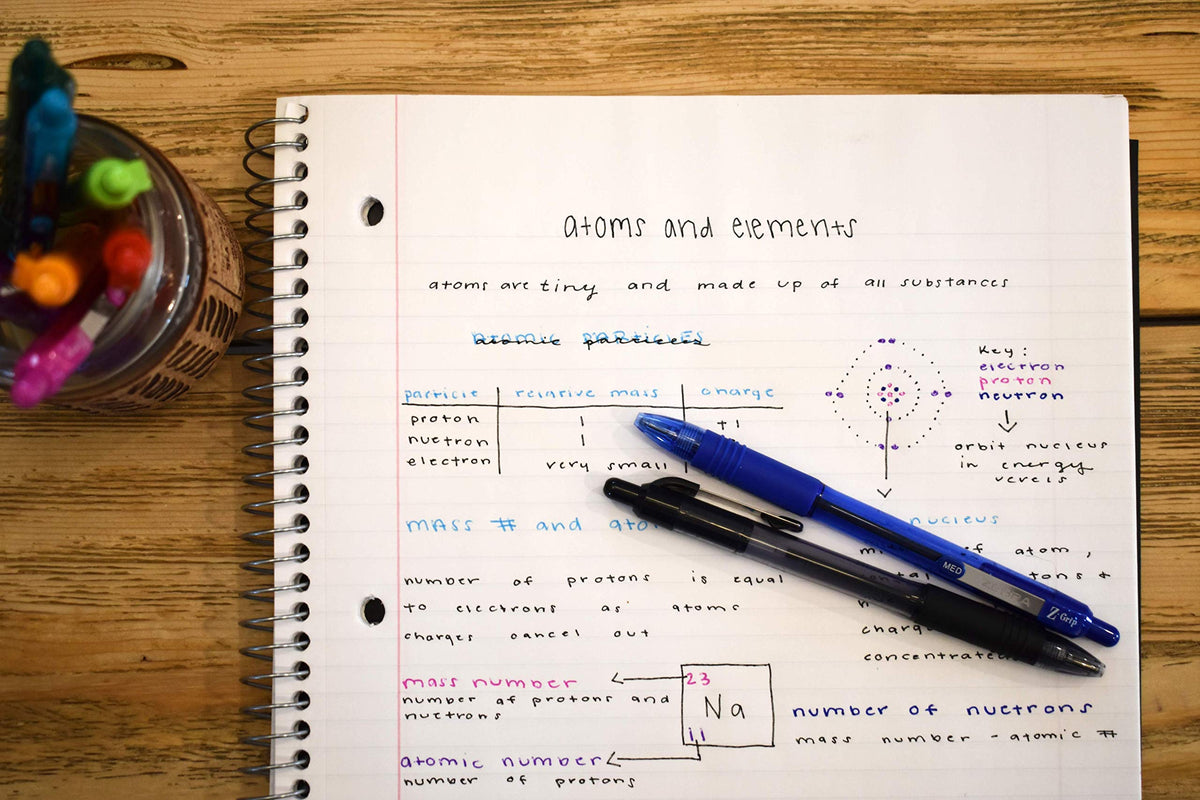 atoms and elements
atoms are tiny and made up of all substances
atomic particles
particle relarive mass charge
proton 1 +1
nuetron 1
electron very small
Key:
electron
proton
neutron
orbit nucleus
in energy
verels
mass # and
nucleus
of atom,
number of protons is equal
to electrons as atoms
charges cancel out
mass number
number of protons and
nuetrons
23
Na
11
atomic number
number of protons
number of nuetrons
mass number - atomic #
MED
ZEBRA
Z-Grip